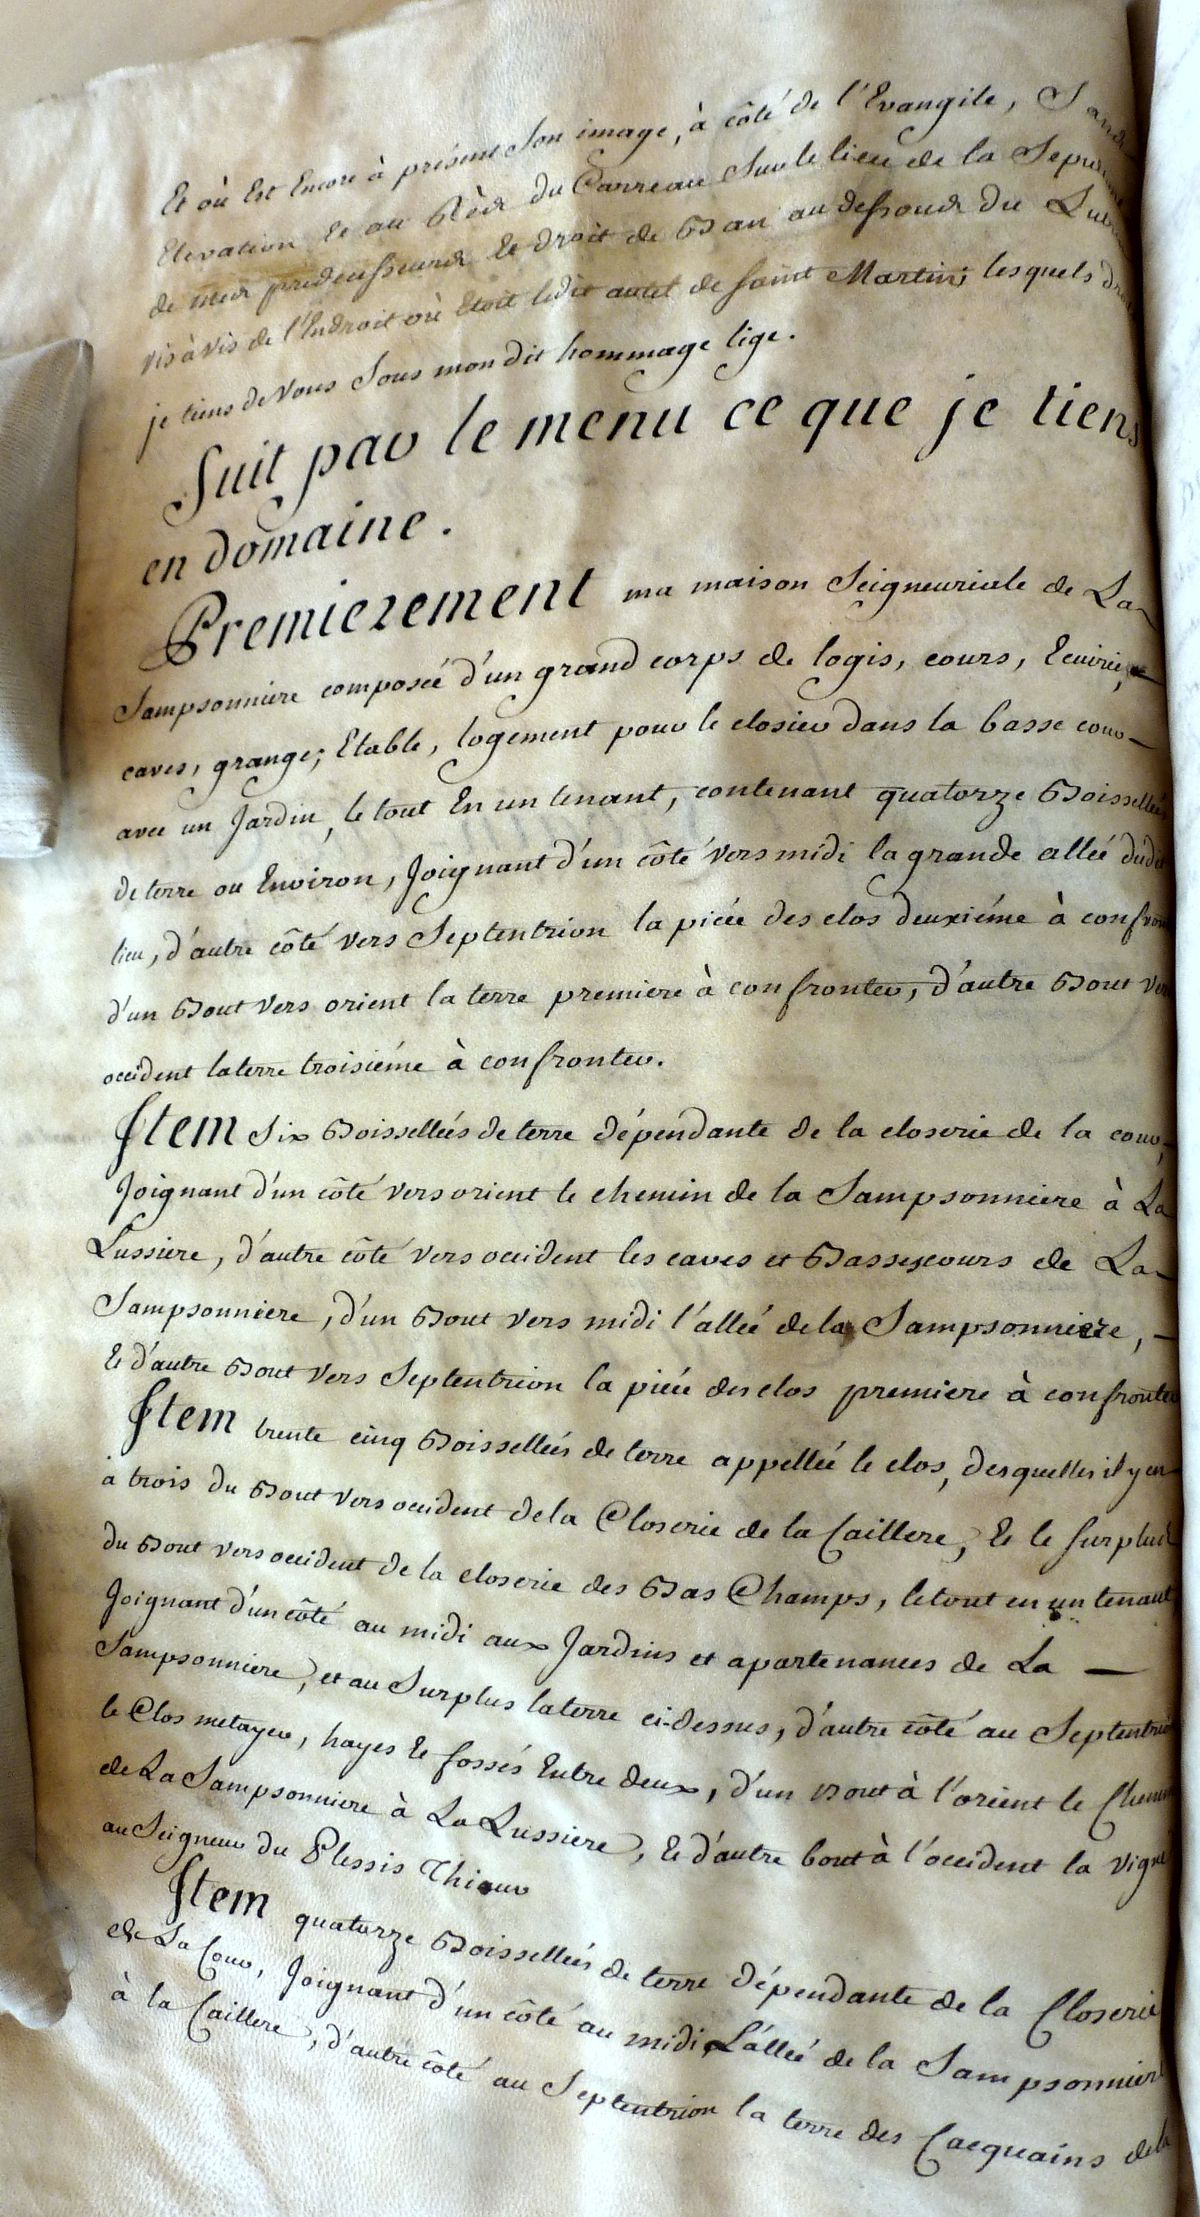 Et où Est Encore à présent Son image, à côté de l'Evangile, Sans
Elevation et au Rèz du Carreau Sur le lieu de la Sepulture
de mes predecesseurs Et droit de Ban au dessous du
vis à vis de l'Endroit où Etoit ledit autel de Saint Martin; lesquels droits
je tiens de Vous Sous mondit hommage lige.
Suit par le menu ce que je tiens
en domaine.
Premierement ma maison Seigneuriale de La
Sampsonniere composeé d'un grand corps de logis, cours, Ecuirie,
caves, grange; Etable, logement pour le closier dans la basse cour
avec un Jardin, le tout En un tenant, contenant quatorze Boisselleés
de terre ou Environ, Joignant d'un côté vers midi la grande alleé dudit
lieu, d'autre côté vers Septentrion la pieée des clos deuxiéme à confronter
d'un Bout vers orient la terre premiere à confronter, d'autre Bout vers
occident la terre troisiéme à confronter.
Item Six Boisselleés de terre dépendante de la closerie de la cour,
Joignant d'un côté vers orient le chemin de la Sampsonniere à La
Lussiere, d'autre côté vers occident les caves et Basses cours de La
Sampsonniere, d'un Bout vers midi l'alleé de la Sampsonniere,
Et d'autre Bout vers Septentrion la pieée des clos premiere à confronter
Item trente cinq Boisselleés de terre appelleé le clos, desquelles il y en
a trois du Bout vers occident de la Closerie de la Caillere, Et le surplus
du Bout vers occident de la closerie des Bas Champs, le tout en un tenant
Joignant d'un côté au midi aux Jardins et apartenances de La
Sampsonniere, et au Surplus la terre ci-dessus, d'autre côté au Septentrion
le Clos metayer, hayes Et fossés Entre deux, d'un Bout à l'orient le Chemin
de La Sampsonniere à La Lussiere, Et d'autre bout à l'occident la vigne
au Seigneur du Plessis
Item quatorze Boisselleés de terre dépendante de la Closerie
de La Cour, Joignant d'un côté au midi L'alleé de la Sampsonniere
à la Caillere, d'autre côté au Septentrion la terre des Cacquains de la